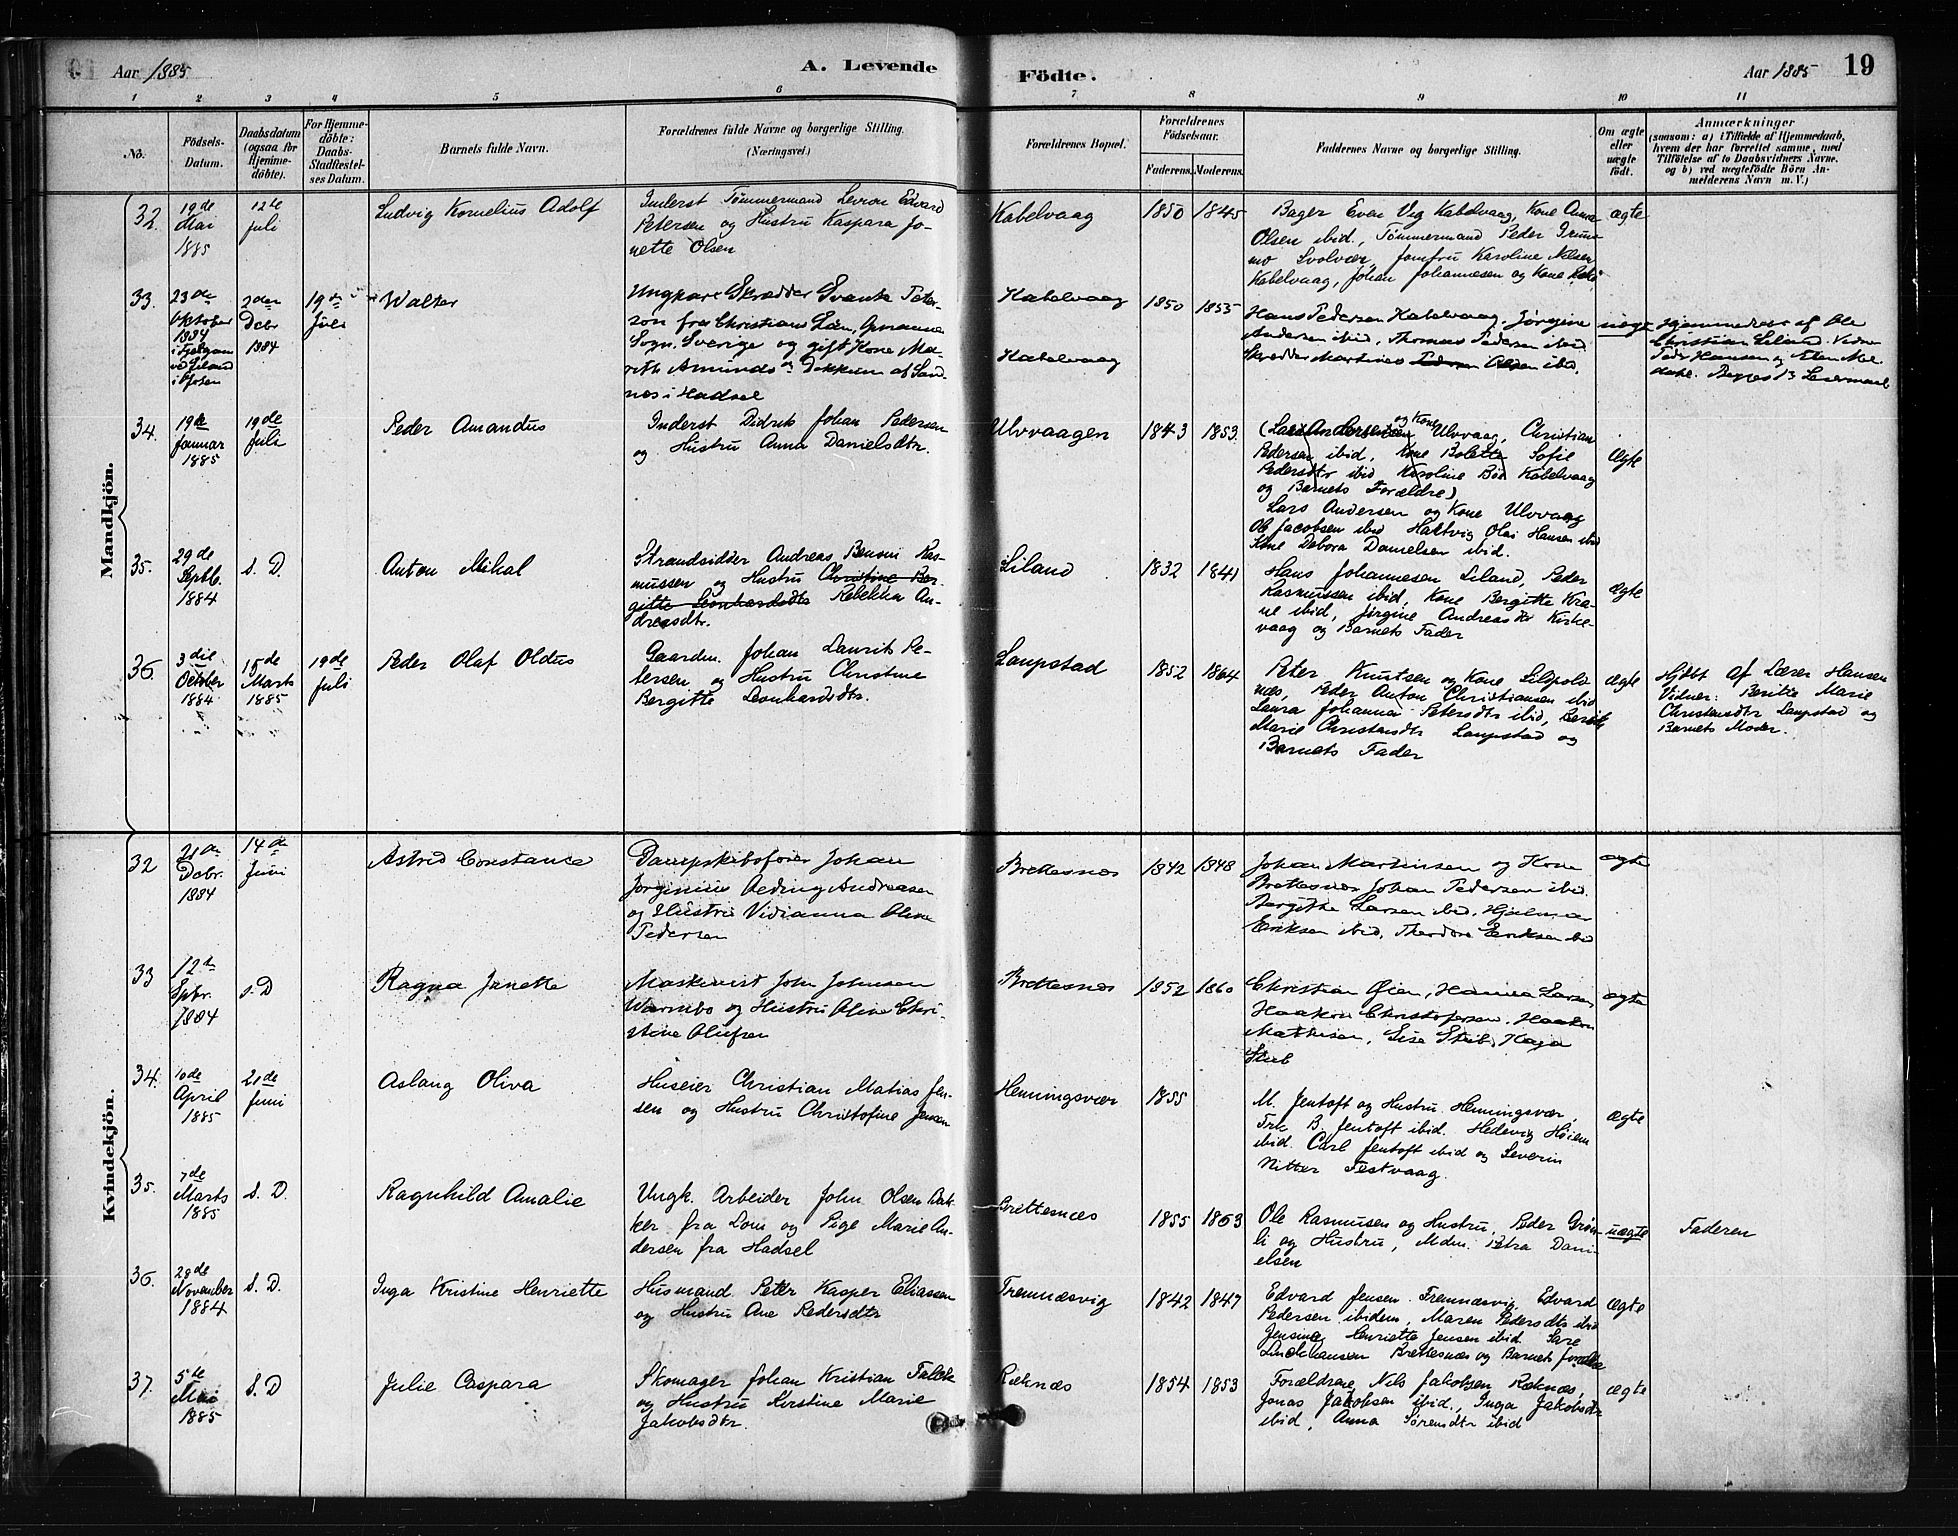 Aar 1885
A. Levende
Födte.
Aar 1885
19
1 2 3 4 5 6 7 8 9 10 11
No.
Födsels-
Datum.
Daabsdatum
(ogsaa for
Hjemme-
döbte).
For Hjemme-
döbte:
Daabs-
Stadfæstel-
ses Datum.
Barnets fulde Navn.
Forældrenes fulde Navne og borgerlige Stilling.
(Næringsvei.)
Forældrenes Bopæl.
Forældrenes
Födselsaar.
Faderens. Moderens.
Faddernes Navne og borgerlige Stilling.
Om ægte
eller
uægte
født.
Anmærkninger
(saasom: a) i Tilfælde af Hjemmedaab,
hvem der har forrettet samme, med
Tilföielse af to Daabsvidners Navne.
og b) ved uægtefödte Börn An-
melderens Navn m. V.)
Mandkjön.
32.
19de
Mai
1885
12te
Juli
Ludvig Kornelius Adolf
Inderst Tømmermand Edvard
Petersen og Hustru Kaspara Jo-
nette Olsen
Kabelvaag
1850 1845
Bager Even Vig Kabelvaag, Kone Anna
Olsen ibid., Tømmermand Peder
Svolvær, Jomfru Karoline Nilsen
Kabelvaag, Johan Johannesen og Kone
ægte
33.
23de
Oktober
1884
2den
Debr
1884
19de
Juli
Walter
Ungkarl Skrædder Svante Peter-
son fra Christians Län,
Sogn, Sverige og gift Kone Ma-
rith af Sand-
nes i Hadsel
Kabelvaag
Kabelvaag
1850 1855
Hans Pedersen Kabelvaag. Jørgine
Andersen ibid, Thomas Pedersen ibid
Skrædder Martinus Olsen ibid.
uægt
Hjemmedøbt af Ole
Christian Liland. Vidner
Peder Hansen og Elen
34.
19de
Januar
1885
19de
Juli
Peder Amandus
Inderst Didrik Johan Pedersen
og Hustru Anna Danielsdtr.
Ulvvaagen
1843 1853.
og Kone
(Lars Andersen Ulvvaag, Christian
Pedersen ibid, Kone Bolette Sofie
Pedersdtr ibid Karoline Bøe Kabelvaag
og Barnets Forældre)
Lars Andersen og Kone Ulvvaag
Ole Jacobsen ibid Hartvig Olai Hansen ibid
Kone Debora Danielsen ibid.
Ægte
35.
29de
Septb.
1884
s. D.
Anton Mikal
Strandsidder Andreas Benoni Ras-
mussen og Hustru Christine Ber-
gitte Leonhardsdtr Rebekka An-
dreasdtr.
Liland
1832 1841
Hans Johannesen Liland, Peder
Rasmussen ibid, Kone Bergitte Kra-
ne ibid, Jørgine Andreasdtr Kirke-
vaag og Barnets Fader
Ægte
36.
3die
October
1884
15de
Marts
1885
19de
Juli
Peder Olaf Oldus
Gaardm. Johan Laurits Pe-
tersen og Hustru Christine
Bergitte Leonhardsdtr.
Laupstad
1852 1864
Peter Knutsen og Kone Lilpold-
næs, Peder Anton Christiansen ibid
Laura Johanna Petersdtr ibid, Berit
Marie Christensdtr Laupstad og
Barnets Fader
ægte
Hjdbt af Lærer Hansen
Vidner: Berikke Marie
Christensdtr Laupstad og
Barnets Moder.
Kvindekjön.
32
21de
Debr.
1884
14de
Juni
Astrid Constance
Dampskibsfører Johan
Jørginius Aeding Andreasen
og Hustru Vidianna Oline
Pedersen
Brettesnæs
1842 1848
Johan Martinsen og Kone
Brettesnæs Johan Pedersen ibid
Bergitte Larsen ibid, Hjalmar
Eriksen ibid, Theodora Eriksen ibid
ægte
33
12te
Spbr.
1884
s. D
Ragna Janette
Maskinist John Johnsen
Warmbo og Hustru Oline Chri-
stine Olufsen
Brettesnæs
1852 1860
Christian Øien, Hanna Larsen
Haakon Christofersen, Haakon
Mathisen, Lise Skib, Haga
Skib
ægte
34.
10de
April
1885
21de
Juni
Aslaug Oliva
Huseier Christian Matias Jen-
sen og Hustru Christofine Jensen
Henningsvær
1855
M. Jentoft og Hustru, Henningsvær
Frk B. Jentoft ibid. Hedevig Høiem
ibid. Carl Jentoft ibid og Severin
Nitter Festvaag.
Ægte
35.
7de
Marts
1885
s. D.
Ragnhild Amalie
Ungk. Arbeider John Olsen Bak-
ker fra Lom og Pige Marie An-
dersen fra Hadsel
Brettesnæs
1855 1863
Ole Rasmusen og Hustru, Peder Grøn-
li og Hustru, Mdm. Petra Dani-
elsen
uægte
Faderen
36.
29de
November
1884
s. D.
Inga Kristine Henriette
Husmand Peter Kasper Eliassen
og Hustru Ane Pedersdtr
Fremnæsvig
1842 1847
Edvard Jensen Fremnæsvig, Edvard
Pedersen ibidem, Maren Pedersdtr ibid
Jensine Henriette Jensen ibid. Sara
Brettesnæs og Barnets forældre
Ægte
37.
5de
Mai
1885
s. D
Julie Caspara
Skomager Johan Kristian Falck
og Hustru Kirstine Marie
Jakobsdtr.
Reknæs
1854 1853
Forældrene, Nils Jakobsen Reknæs,
Jonas Jakobsen ibid., Inga Jakobsdtr
ibid, Anna Sørensdtr ibid
ægte